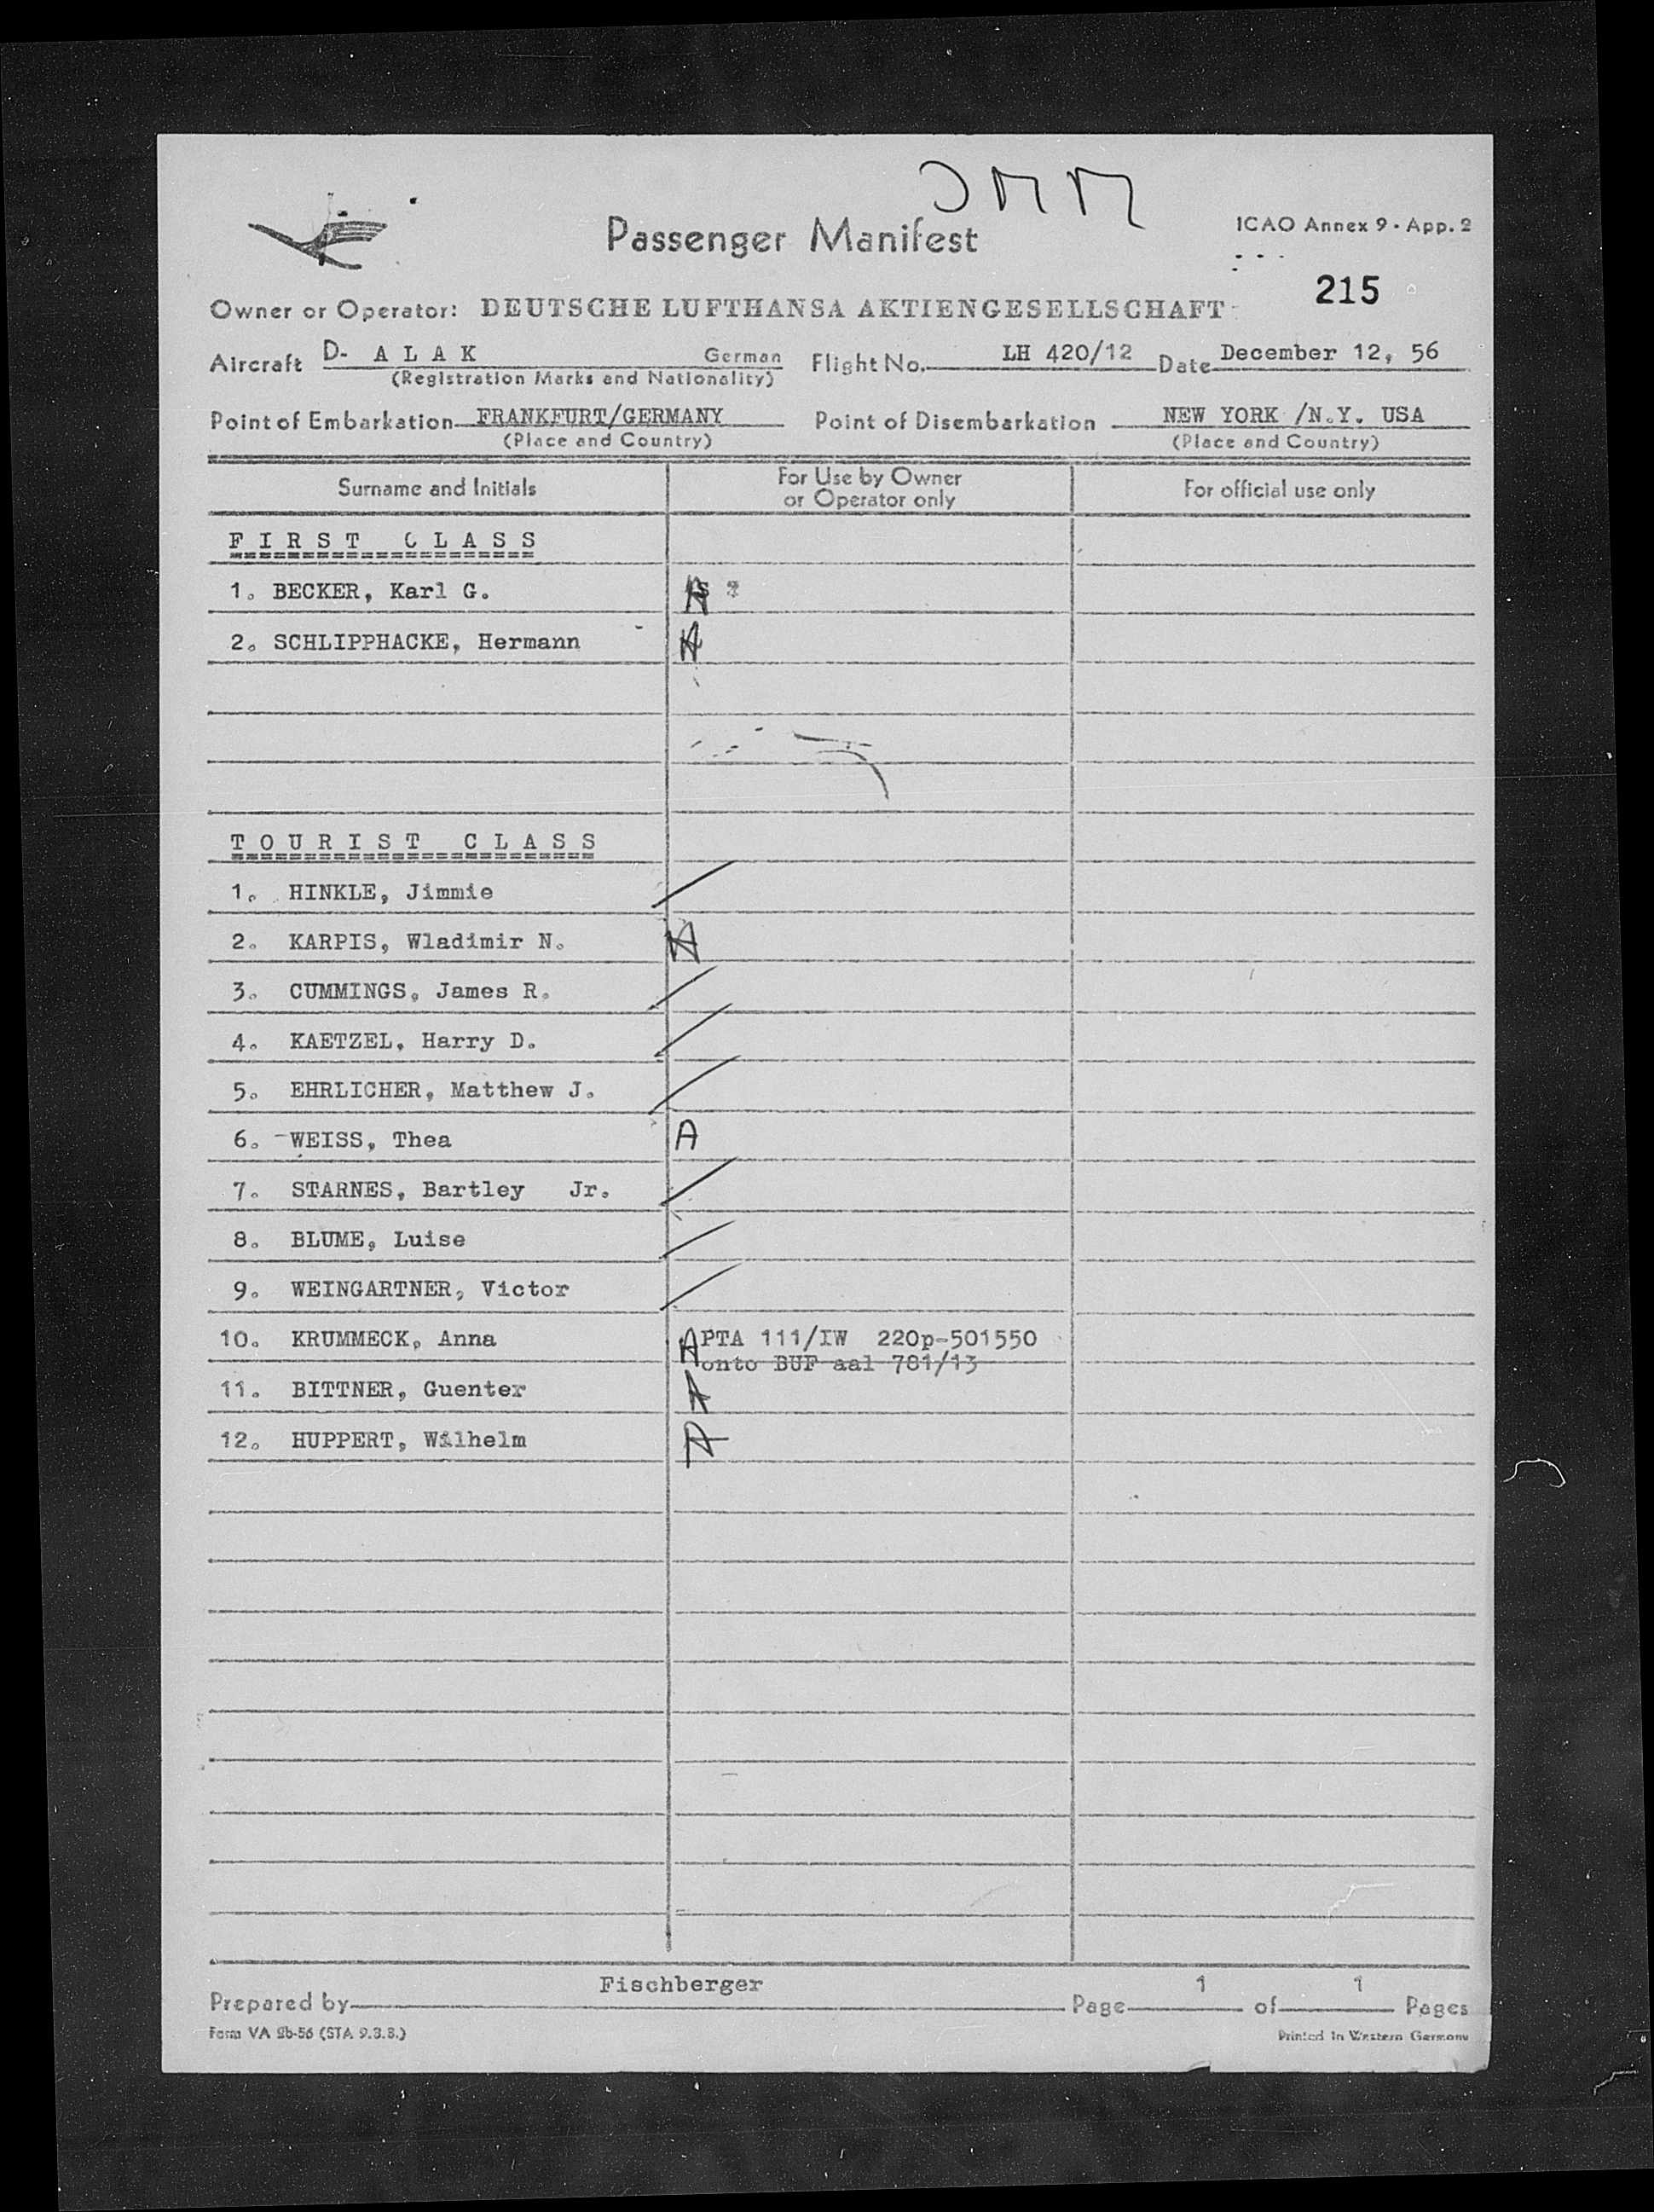 Passenger Manifest
ICAO Annex 9 - App. 2
215
Owner or Operator: DEUTSCHE LUFTHANSA AKTIENGESELLSCHAFT
Aircraft D- A L A K German Flight No. LH 420/12 Date December 12, 56
(Registration Marks and Nationality)
Point of Embarkation FRANKFURT/GERMANY Point of Disembarkation NEW YORK /N.Y. USA
(Place and Country) (Place and Country)
Surname and Initials For Use by Owner or Operator only For official use only
F I R S T C L A S S
1. BECKER, Karl G. A
2. SCHLIPPHACKE, Hermann A
T O U R I S T C L A S S
1. HINKLE, Jimmie
2. KARPIS, Wladimir N. A
3. CUMMINGS, James R.
4. KAETZEL, Harry D.
5. EHRLICHER, Matthew J.
6. -WEISS, Thea A
7. STARNES, Bartley Jr.
8. BLUME, Luise
9. WEINGARTNER, Victor
10. KRUMMECK, Anna A PTA 111/IW 220p-501550
onto BUF aal 781/13
11. BITTNER, Guenter A
12. HUPPERT, Wilhelm A
Prepared by Fischberger Page 1 of 1 Pages
Form VA 2b-56 (STA 9.3.8.) Printed in Western Germany